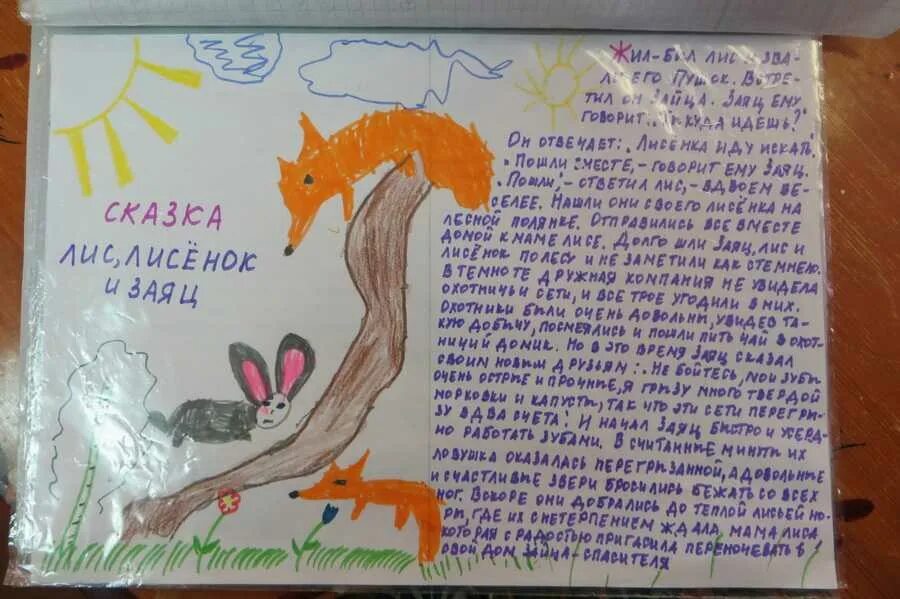 СКАЗКА
ЛИС, ЛИСЁНОК
И ЗАЯЦ
ЖИЛ-БЫЛ ЛИС И ЗВА-
ЛИ ЕГО ПУШОК. ВСТРЕ-
ТИЛ ОН ЗАЙЦА. ЗАЯЦ ЕМУ
ГОВОРИТ: „КУДА ИДЕШЬ?"
ОН ОТВЕЧАЕТ: „ЛИСЕНКА ИДУ ИСКАТЬ".
„ПОШЛИ ВМЕСТЕ, - ГОВОРИТ ЕМУ ЗАЯЦ.
„ПОШЛИ, - ОТВЕТИЛ ЛИС, - ВДВОЕМ ВЕ-
СЕЛЕЕ. НАШЛИ ОНИ СВОЕГО ЛИСЁНКА НА
ЛЕСНОЙ ПОЛЯНКЕ. ОТПРАВИЛИСЬ ВСЕ ВМЕСТЕ
ДОМОЙ К МАМЕ ЛИСЕ. ДОЛГО ШЛИ ЗАЯЦ, ЛИС И
ЛИСЁНОК ПО ЛЕСУ И НЕ ЗАМЕТИЛИ КАК СТЕМНЕЛО.
В ТЕМНОТЕ ДРУЖНАЯ КОМПАНИЯ НЕ УВИДЕЛА
ОХОТНИЧЬИ СЕТИ, И ВСЕ ТРОЕ УГОДИЛИ В НИХ.
ОХОТНИКИ БЫЛИ ОЧЕНЬ ДОВОЛЬНЫ, УВИДЕВ ТА-
КУЮ ДОБЫЧУ, ПОСМЕЯЛИСЬ И ПОШЛИ ПИТЬ ЧАЙ В ОХОТ-
НИЧИЙ ДОМИК. НО В ЭТО ВРЕМЯ ЗАЯЦ СКАЗАЛ
СВОИМ НОВЫМ ДРУЗЬЯМ: „НЕ БОЙТЕСЬ, МОИ ЗУБЫ
ОЧЕНЬ ОСТРЫЕ И ПРОЧНЫЕ, Я ГРЫЗУ МНОГО ТВЕРДОЙ
МОРКОВКИ И КАПУСТЫ, ТАК ЧТО ЭТИ СЕТИ ПЕРЕГРЫ-
ЗУ В ДВА СЧЕТА! И НАЧАЛ ЗАЯЦ БЫСТРО И УСЕРД-
НО РАБОТАТЬ ЗУБАМИ. В СЧИТАННЫЕ МИНУТЫ ИХ
ЛОВУШКА ОКАЗАЛАСЬ ПЕРЕГРЫЗАННОЙ, А ДОВОЛЬНЫЕ
И СЧАСТЛИВЫЕ ЗВЕРИ БРОСИЛИСЬ БЕЖАТЬ СО ВСЕХ
НОГ. ВСКОРЕ ОНИ ДОБРАЛИСЬ ДО ТЕПЛОЙ ЛИСЬЕЙ НО-
РЫ, ГДЕ ИХ С НЕТЕРПЕНИЕМ ЖДАЛА, МАМА ЛИСА
КОТОРАЯ С РАДОСТЬЮ ПРИГАСИЛА ПЕРЕНОЧЕВАТЬ В
СВОЙ ДОМ ЗАЙЦА - СПАСИТЕЛЯ